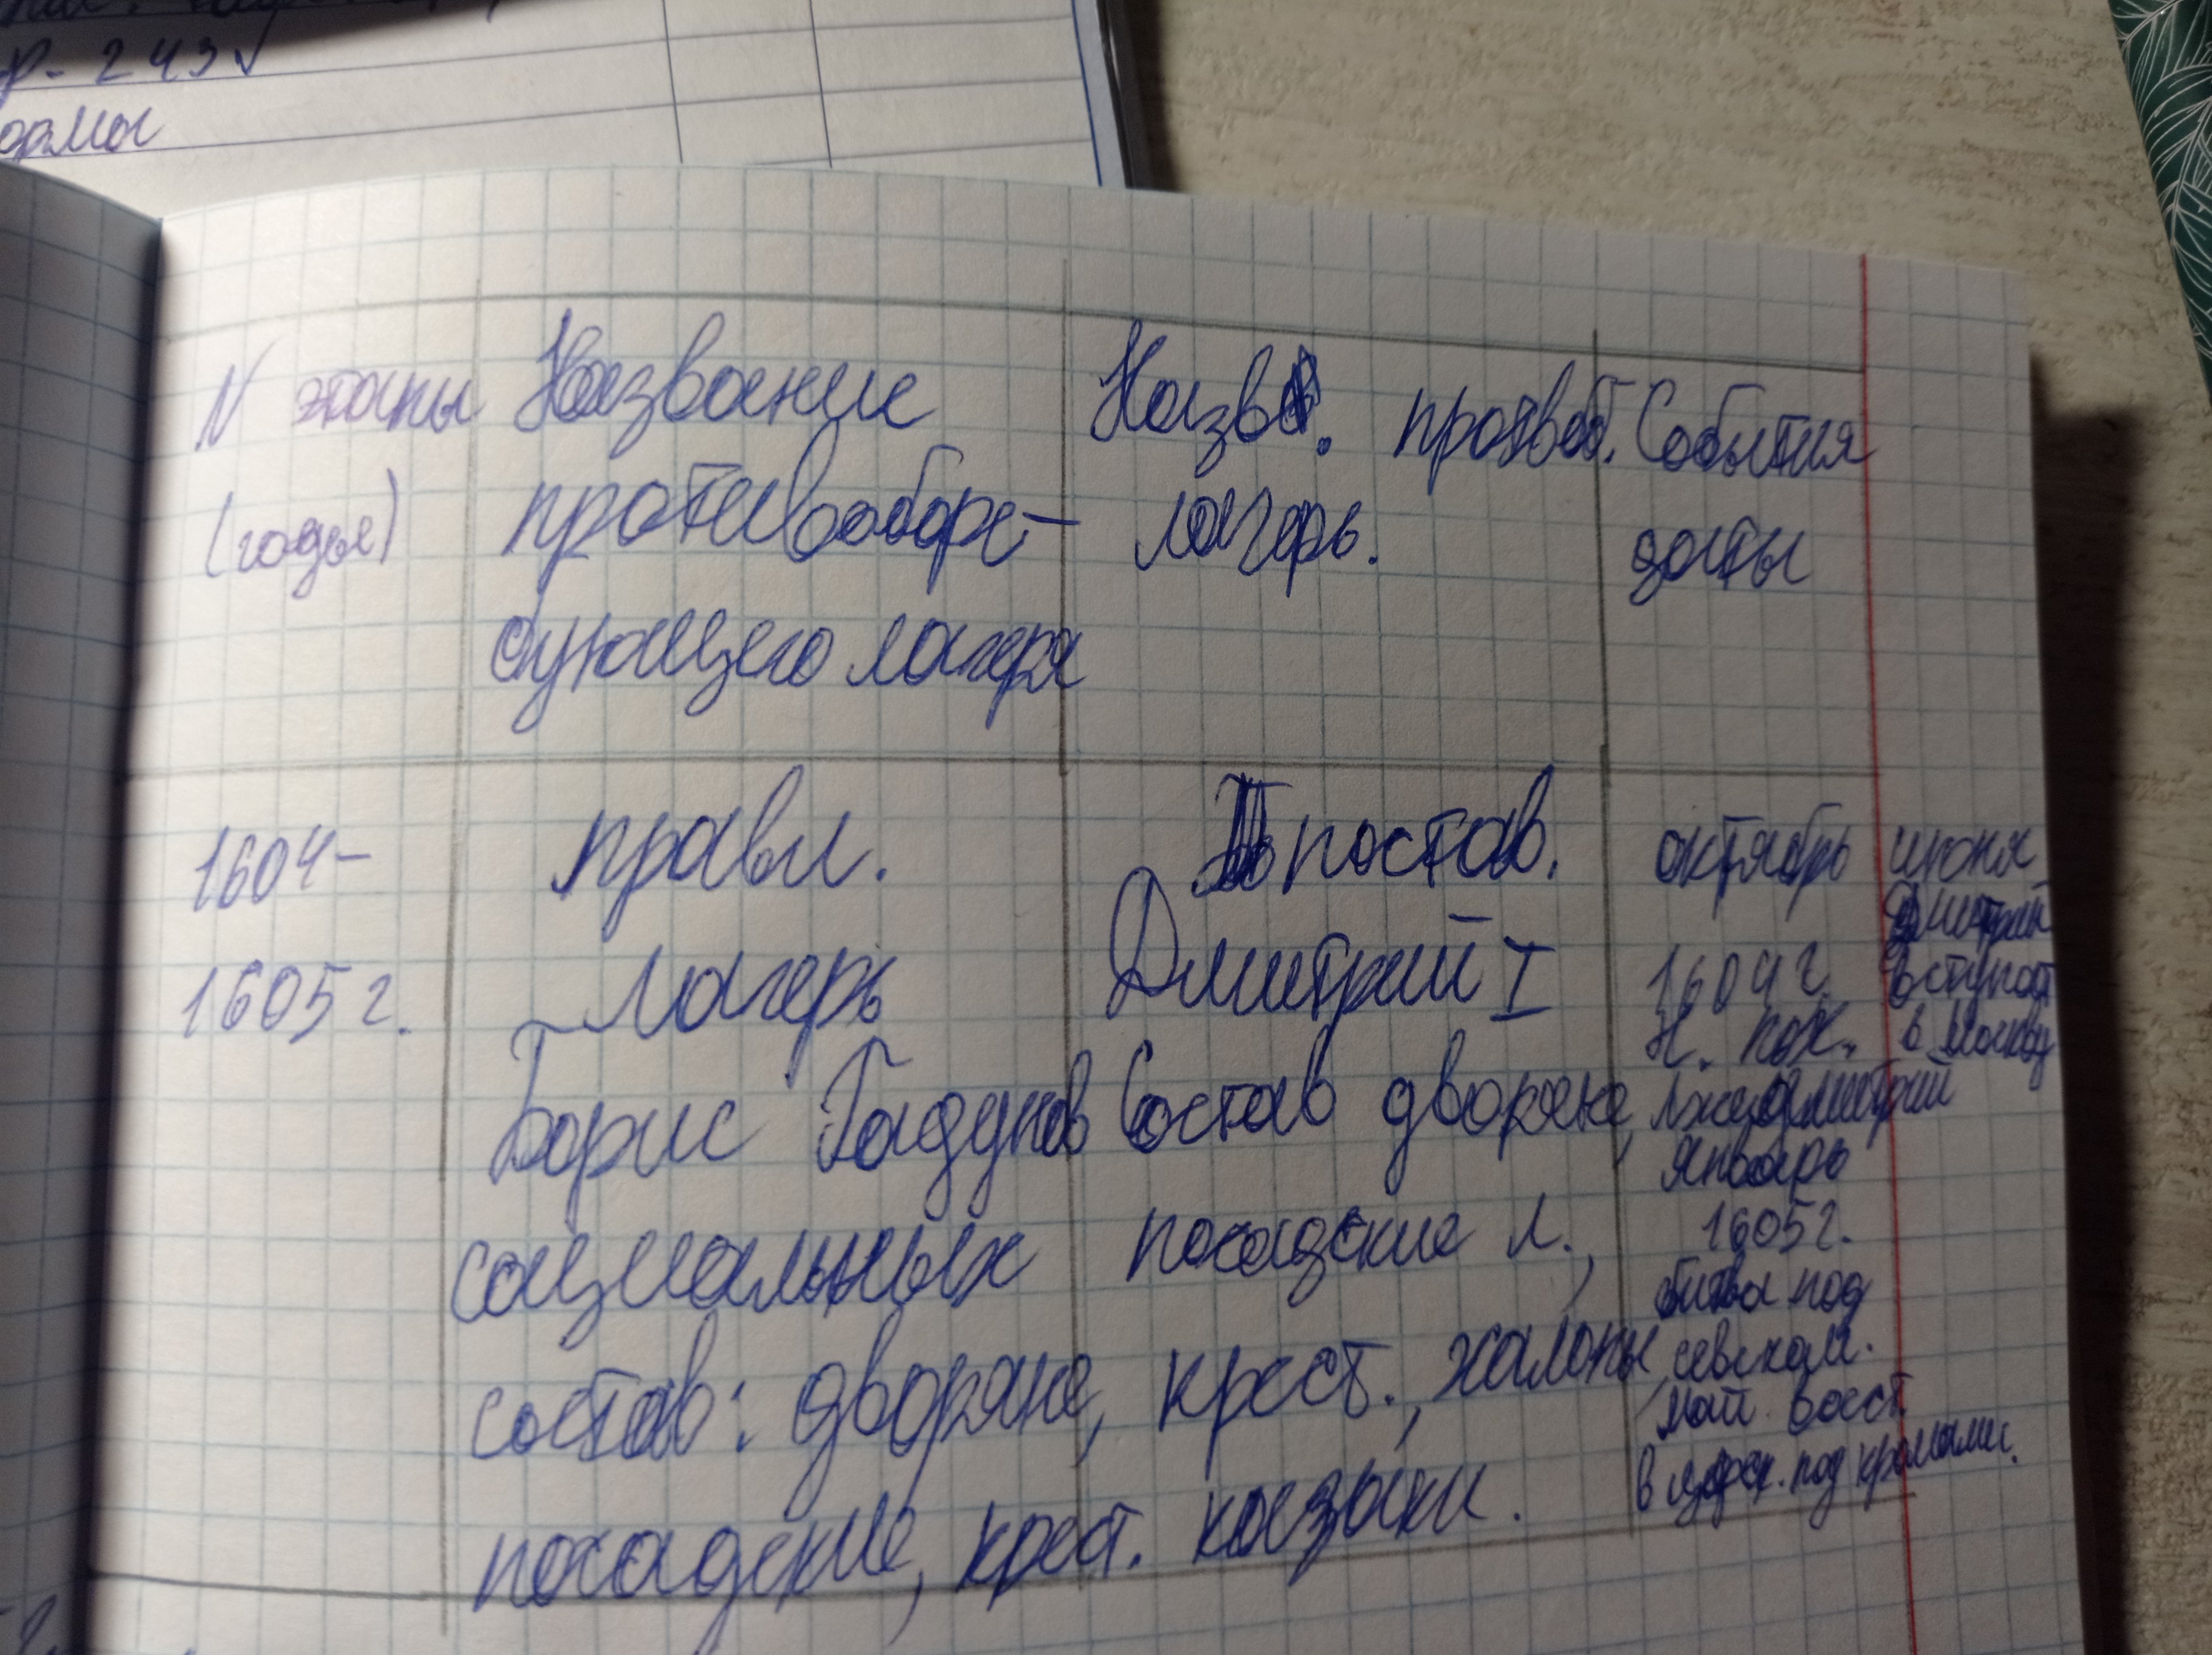 р. 243 √
ормы
N этапы
(годы)
Название
противоборс-
твующего лагеря
Назв. противоб.
лагерь.
События
даты
1604-
1605 г.
правл.
лагерь
Борис Гадунов
социальных
состав: дворяне,
посадские, крест.
постав.
Дмитрий I
Состав дворяне,
посадские л.,
крест., халопы
козаки.
октябрь
1604 г.
Н. пох.
Лжедмитрий
январь
1605 г.
битва под
севском.
май. восст.
в царск. под кромами.
июня
Дмитрий
вступает
в Москву